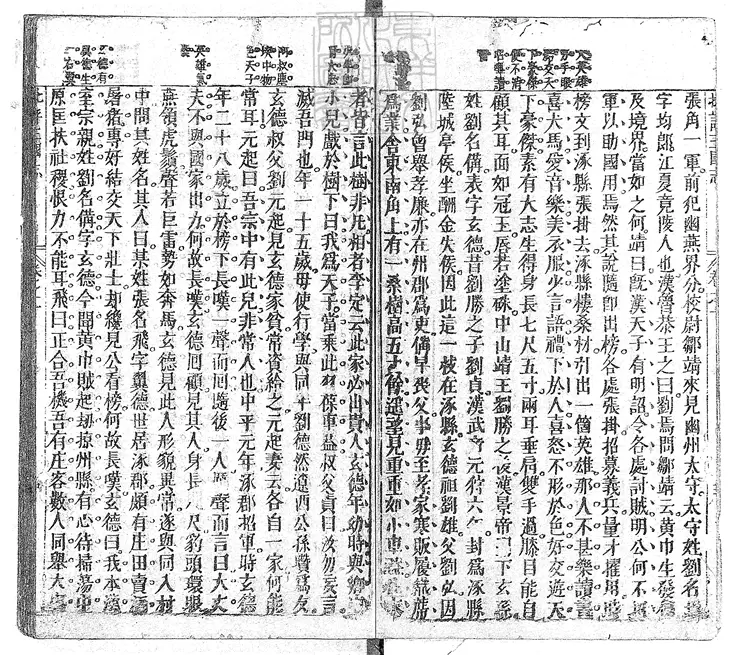 張角一軍前犯幽燕界分校尉鄒靖來見幽州太守太守姓劉名焉
字均郎江夏竟陵人也漢魯恭王之 劉焉問鄒靖云黃巾生發侵
及境界當如之何靖曰既漢天子有明詔令各處討賊明公何不
軍以助國用焉然其說隨即出榜各處張掛招募義兵量才擢用
榜文到涿縣張掛去涿縣樓桑村引出一箇英雄那人不甚樂讀書
喜犬馬愛音樂美衣服少言語禮下於人喜怒不形於色好交遊天
下豪傑素有大志生得身長七尺五寸兩耳垂肩雙手過膝目能自
顧其耳面如冠玉唇若塗硃中山靖王劉勝之後漢景帝 下玄孫
姓劉名備表字玄德昔劉勝之子劉貞漢武帝元狩六年封為涿縣
陸城亭侯坐酬金失侯因此這一枝在涿縣玄德祖劉雄父劉弘因
劉弘曾舉孝廉亦在州郡為吏備早喪父事母至孝家寒販履織蓆
為業舍東南角上有一桑樹高五丈餘遙望見重重如小車蓋往來
者皆言此樹非凡相者李定云此家必出貴人玄德年幼時與鄉
小兒戲於樹下曰我為天子當乘此羽葆車蓋叔父責曰汝勿妄言
滅吾門也年一十五歲母使行學與同 劉德然遼西公孫瓚為友
玄德叔父劉元起見玄德家貧常資給之元起妻云各自一家何能
常耳元起曰吾宗中有此兒非常人也中平元年涿郡招軍時玄德
年二十八歲立於榜下長嘆一聲而回隨後一人 聲而言曰大丈
夫不與國家出力何故長嘆玄德回顧見其人身長 尺豹頭環眼
燕頷虎鬚聲若巨雷勢如奔馬玄德見此人形貌異常遂與同入村
中問其姓名其人曰某姓張名飛字翼德世居涿郡頗有庄田賣酒
屠豬專好結交天下壯士却纔見公看榜何故長嘆玄德曰我本漢
室宗親姓劉名備字玄德今聞黃巾賊起劫掠州縣有心待掃蕩中
原匡扶社稷恨力不能耳飛曰正合吾機吾有庄客數人同舉大